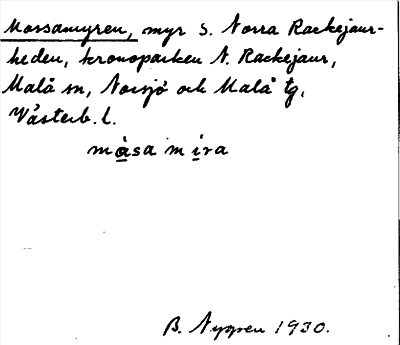 Mossamyren, myr s. Norra Rackejaur-
heden, kronoparken N. Rackejaur,
Malå sn, Norsjö och Malå tg,
Västerb. l.
måsa mira
B. Nygren 1930.